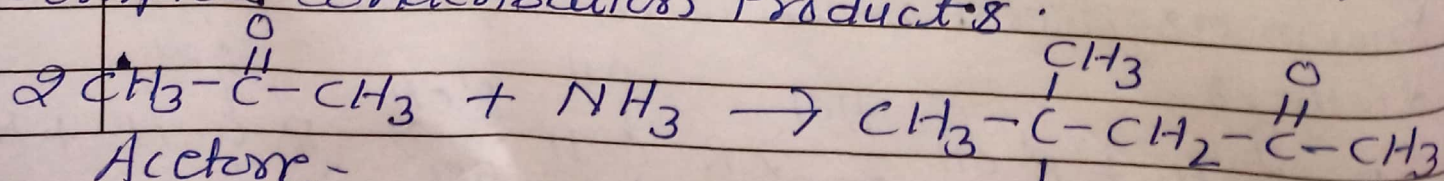 Products.
O CH3 O
2 CH3-C-CH3 + NH3 → CH3-C-CH2-C-CH3
Acetone-